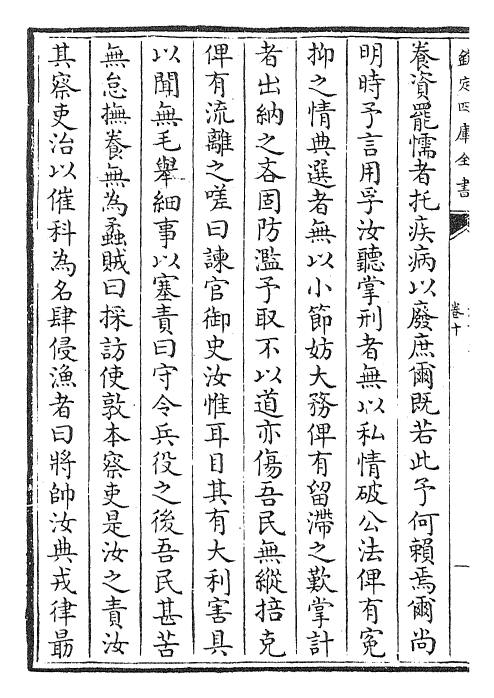 欽定四庫全書
卷十
養資罷懦者托疾病以廢庶爾既若此予何賴焉爾尚
明時予言用孚汝聽掌刑者無以私情破公法俾有寃
抑之情典選者無以小節妨大務俾有留滯之歎掌計
者出納之吝固防濫予取不以道亦傷吾民無縱掊克
俾有流離之嗟曰諫官御史汝惟耳目其有大利害具
以聞無毛舉細事以塞責曰守令兵役之後吾民甚苦
無怠撫養無為蟊賊曰採訪使敦本察吏是汝之責汝
其察吏治以催科為名肆侵漁者曰將帥汝典戎律最